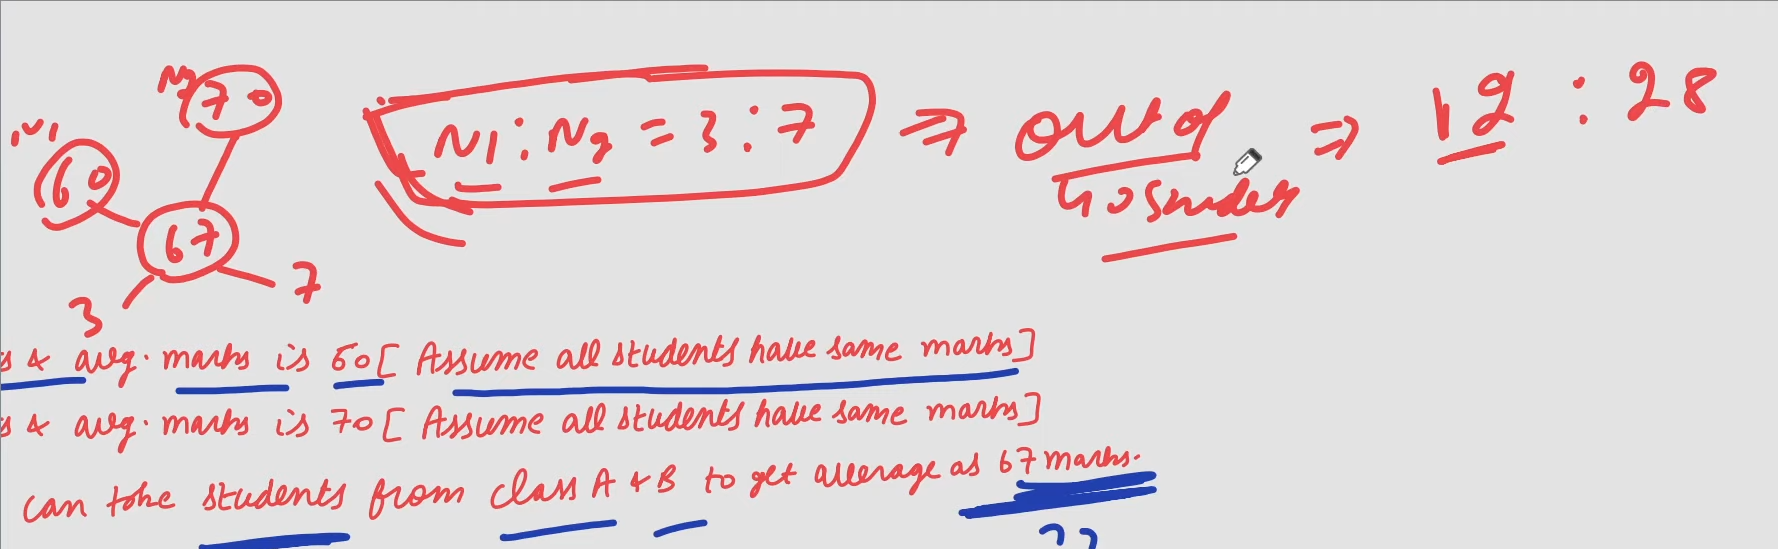 N2 70
N1 60
67
3 7
N1 : N2 = 3 : 7 ⇒ out of 40 students ⇒ 12 : 28
s & avg. marks is 60 [ Assume all students have same marks]
s & avg. marks is 70 [ Assume all students have same marks]
can take students from class A & B to get average as 67 marks.
??